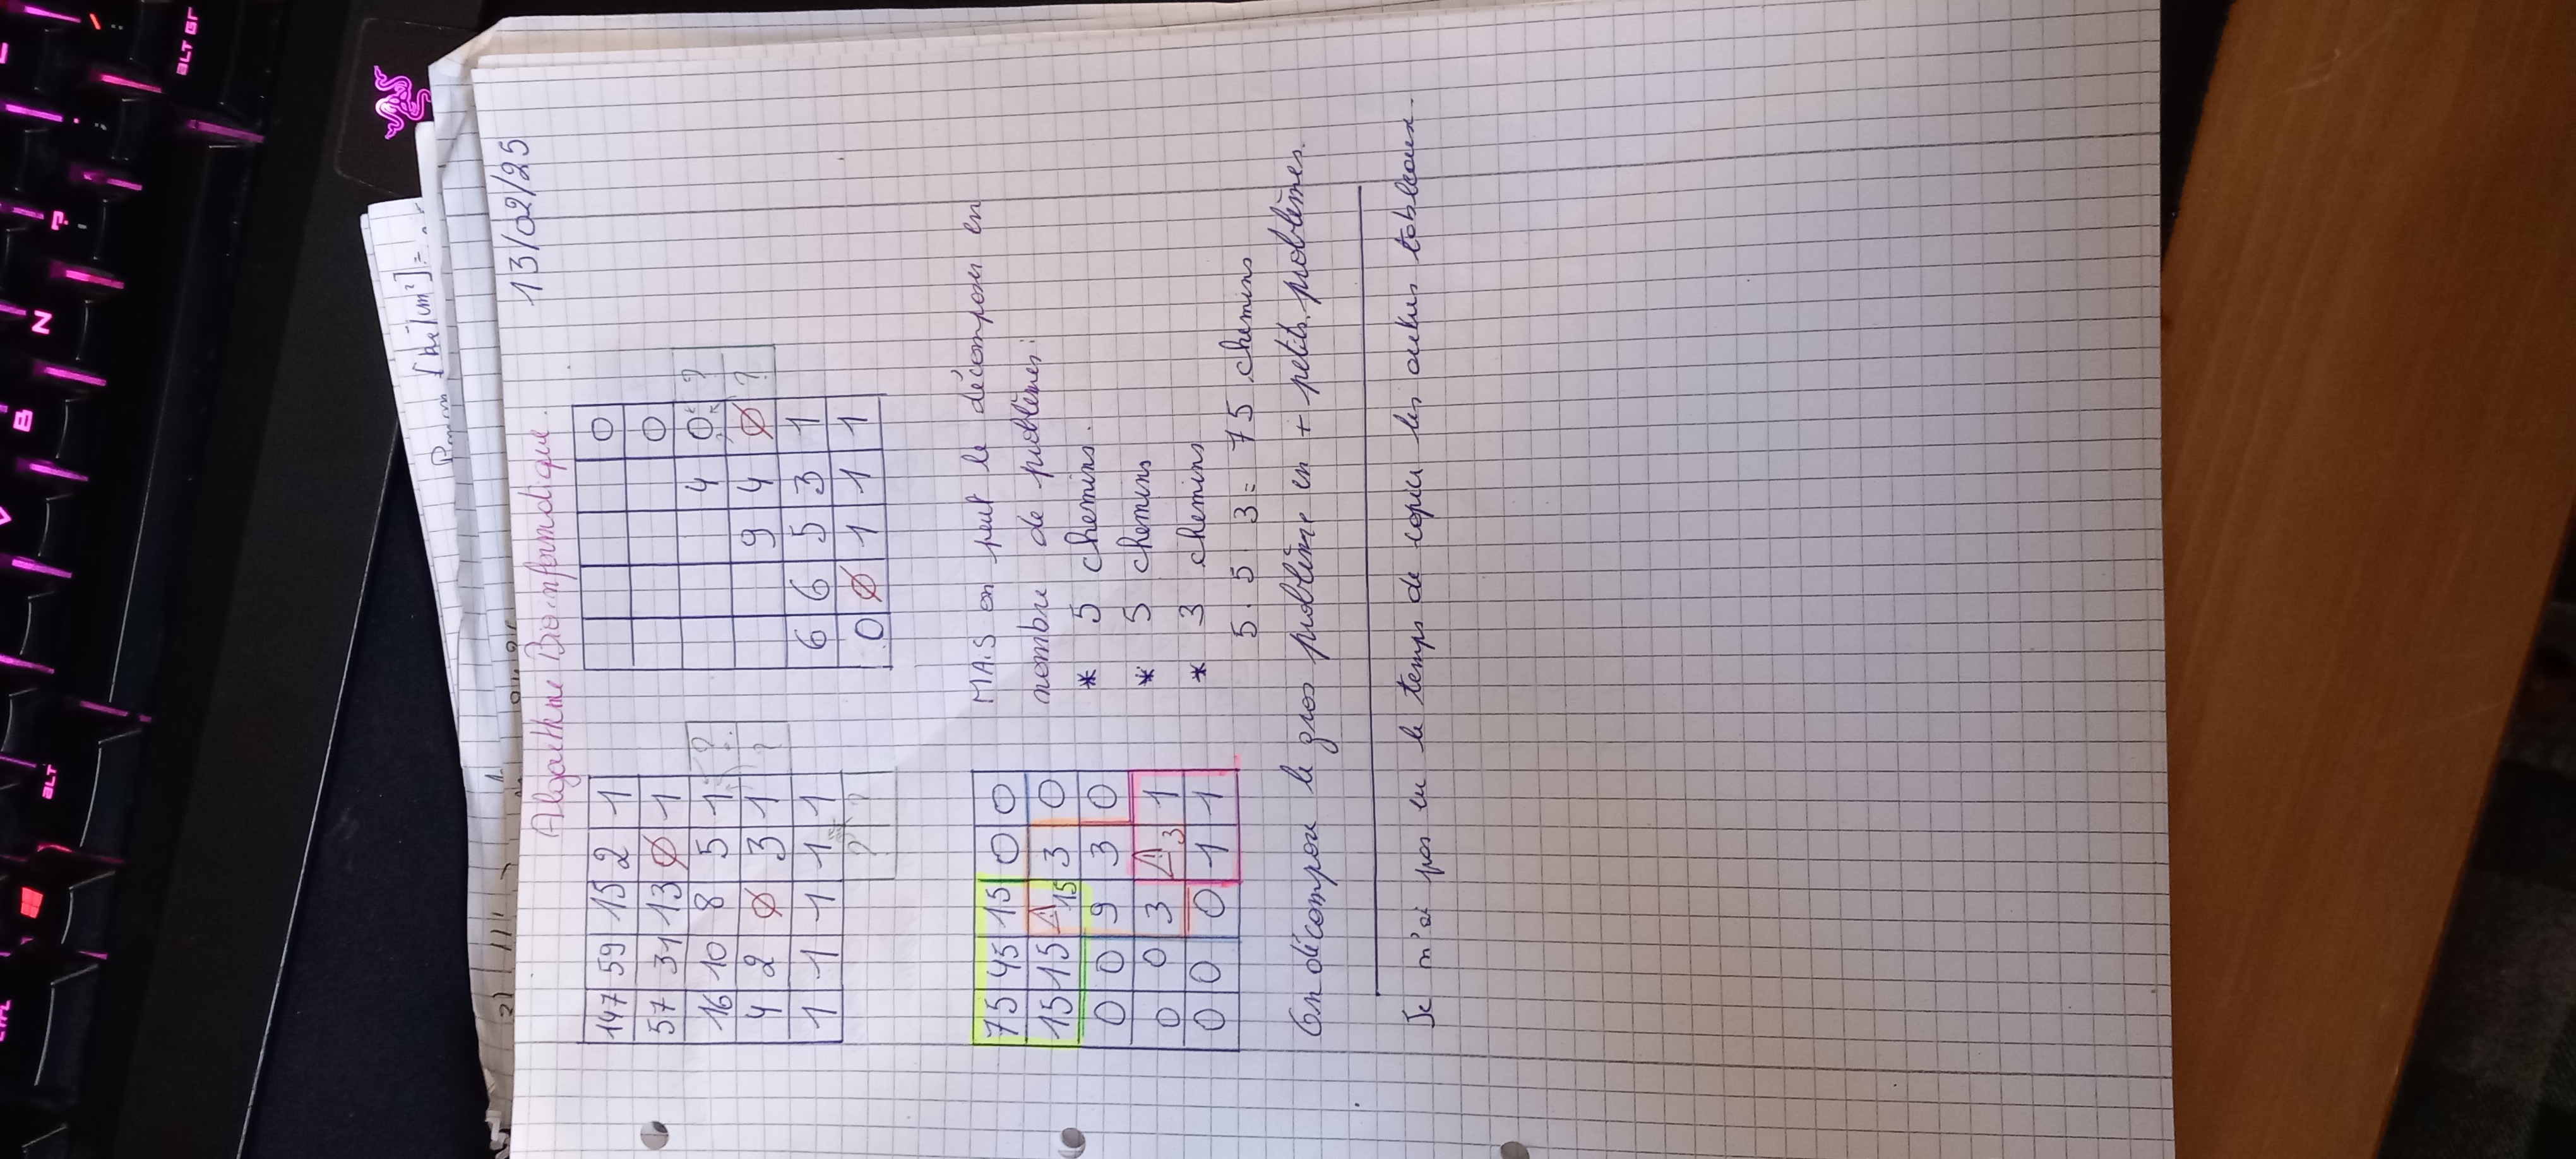 CTRL
ALT
V
B
N
?
ALT GR
13/02/25
Algorithme Bioinformatique.
147 59 15 2 1
57 31 13 Ø 1
16 10 8 5 1 ?
4 2 Ø 3 1 ?
1 1 1 1 1
? ?
0
0
4 0 ?
9 4 Ø ?
6 6 5 3 1
0 Ø 1 1 1
75 45 15 0 0
15 15 Δ15 3 0
0 0 9 3 0
0 0 3 Δ3 1
0 0 0 1 1
MAiS on peut le décomposer en
nombre de problèmes:
* 5 chemins.
* 5 chemins
* 3 chemins
5. 5 3 = 75 chemins
On décompose le gros problème en + petits problèmes.
Je n'ai pas eu le temps de copier les autres tableaux.